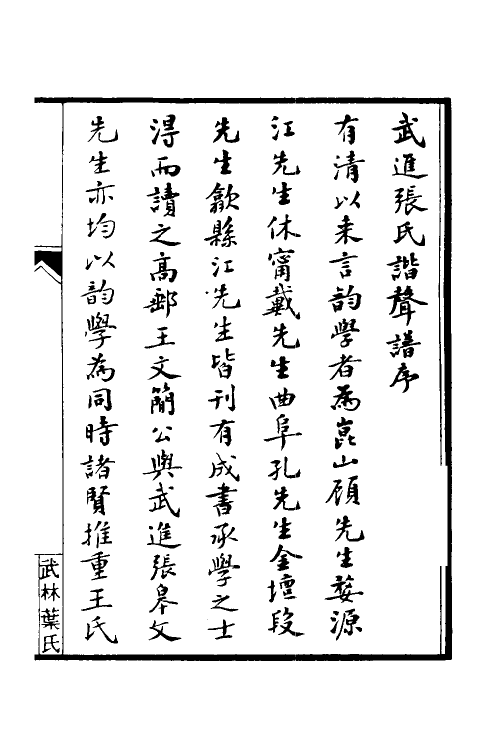 武進張氏諧聲譜序
有清以来言韵學者爲崑山顧先生婺源
江先生休甯戴先生曲阜孔先生金壇段
先生歙縣江先生皆刊有成書承學之士
淂而讀之高郵王文簡公與武進張皋文
先生亦均以韵學為同時諸賢推重王氏
武林葉氏